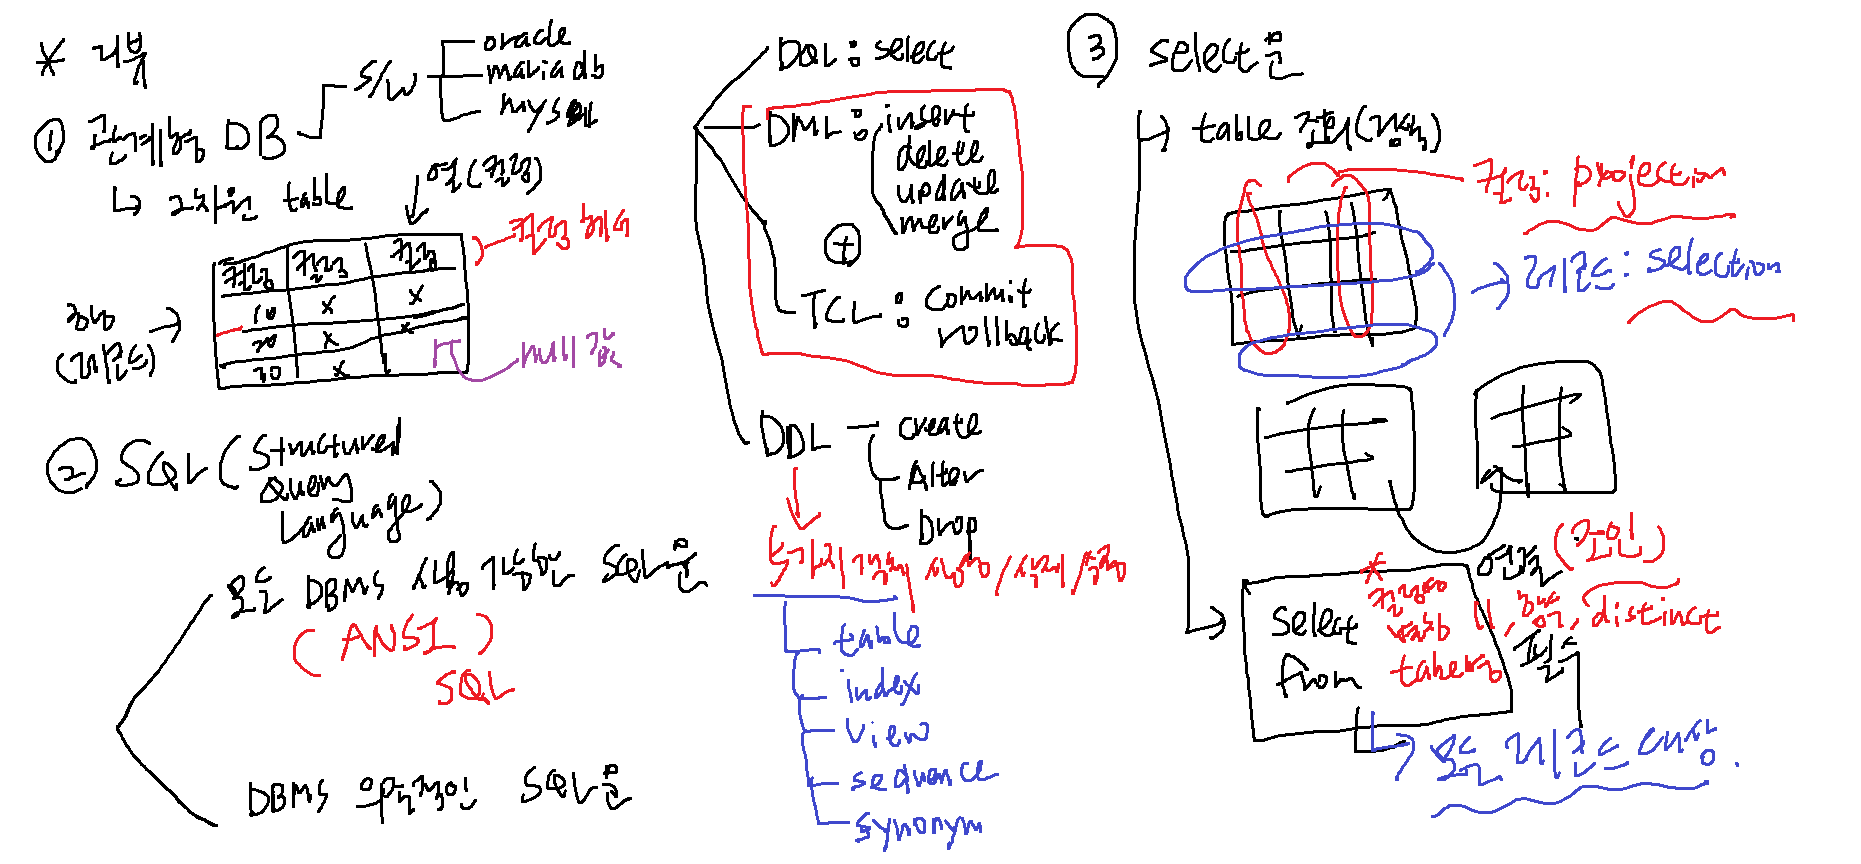 * 리뷰
① 관계형 DB
S/W
oracle
maria db
mysql
↳ 2차원 table
열(컬럼)
컬럼 헤더
컬럼 컬럼 컬럼
10 x x
20 x x
30 x
행
(레코드)
null 값
② SQL (Structured
Query
Language)
모든 DBMS 사용 가능한 SQL문
(ANSI)
SQL
DBMS 의존적인 SQL문
DQL : select
DML : insert
delete
update
merge
+
TCL : commit
rollback
DDL
create
Alter
Drop
5가지 객체 생성/삭제/수정
table
index
view
sequence
synonym
③ select문
→ table 조회(검색)
컬럼: projection
레코드: selection
연결 (조인)
*
select 컬럼명
from
, distinct
필수
→ 모든 레코드 대상.